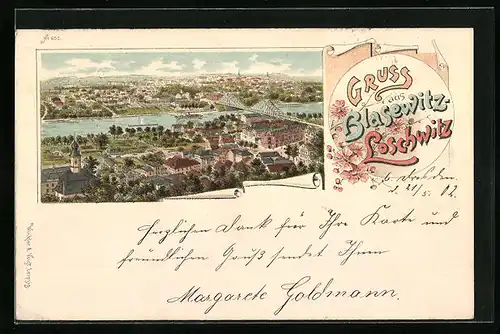 GRUSS
aus
Blasewitz-
Loschwitz
b. Dresden
d. 21/5. 02
Herzlichen Dank für Ihre Karte und
freundlichen Gruß sendet Ihnen
Margarete Goldmann.